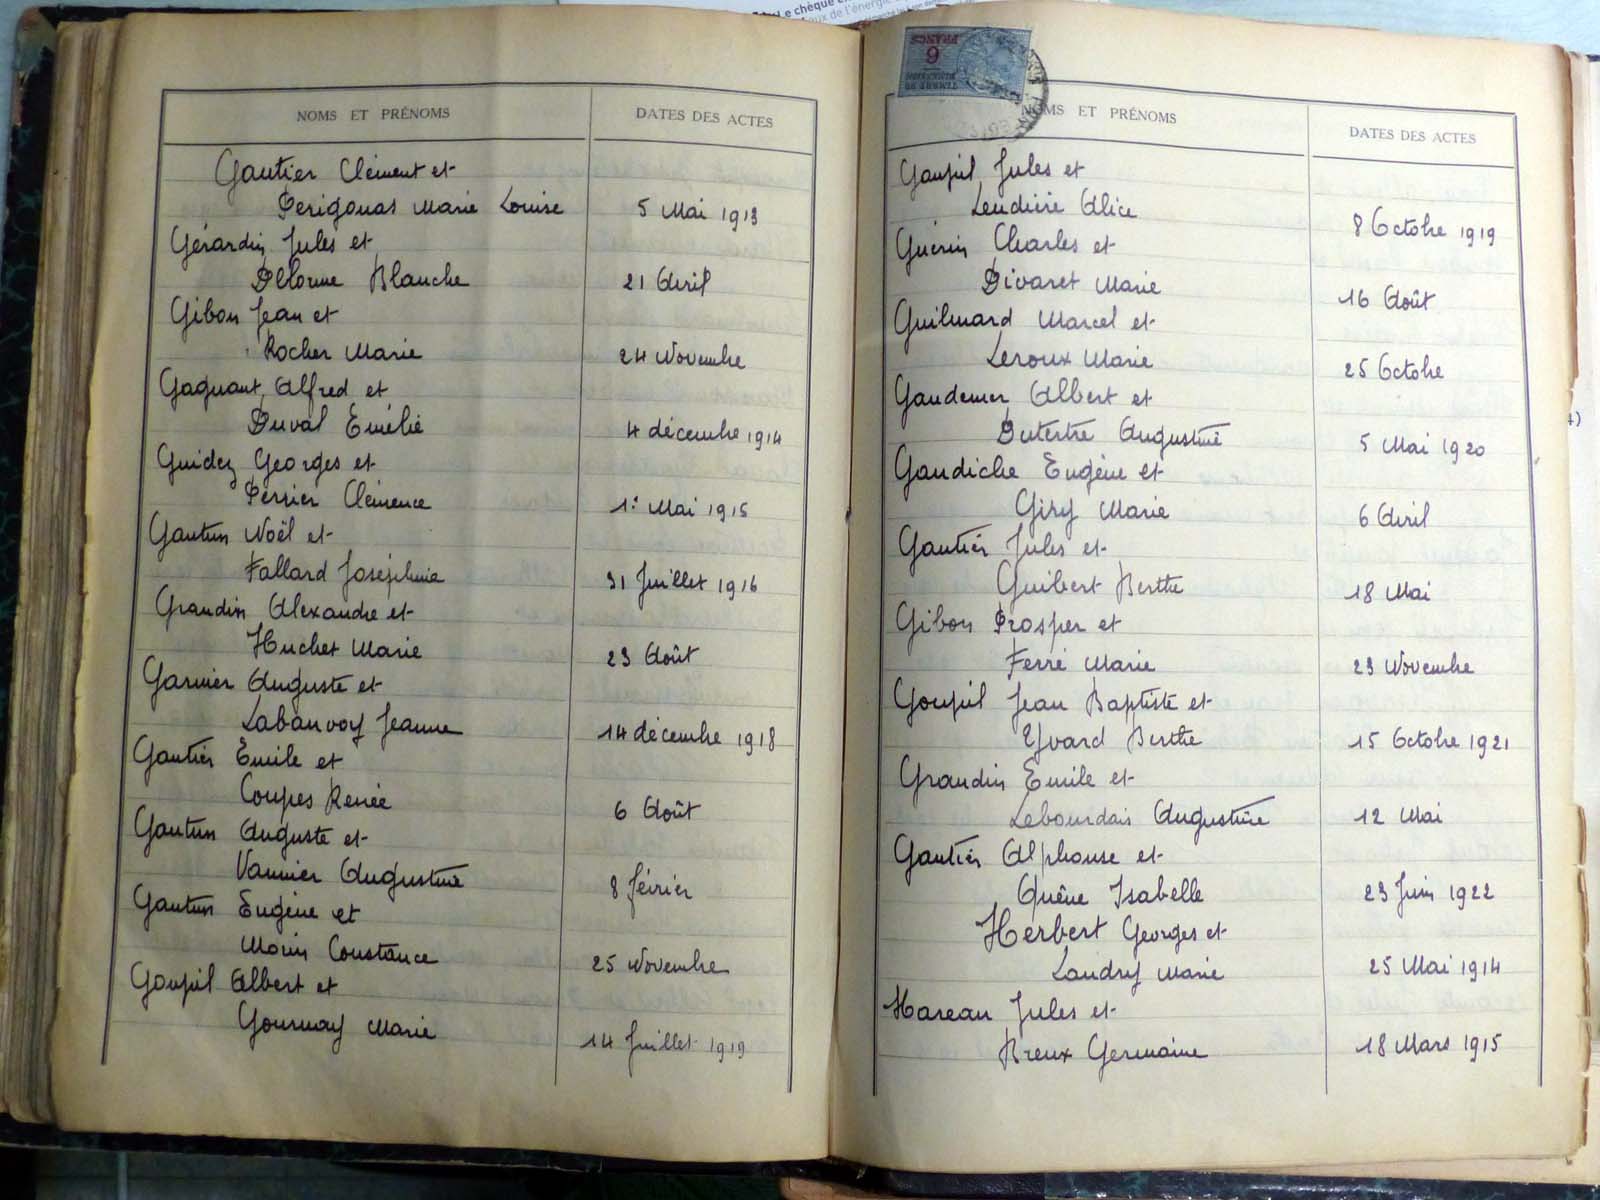 NOMS ET PRÉNOMS DATES DES ACTES
Gautier Clément et
Perigouas Marie Louise 5 Mai 1913
Gérardin Jules et
Delorme Blanche 21 Avril
Gibon Jean et
Rocher Marie 24 Novembre
Gagnant Alfred et
Duval Emélie 4 décembre 1914
Guidez Georges et
Perrier Clémence 1: Mai 1915
Noël et
Fallard Joséphine 31 Juillet 1916
Grandin Alexandre et
Huchet Marie 23 Août
Garnier Auguste et
Labanvoy Jeanne 14 décembre 1918
Gautier Emile et
Coupes Renée 6 Août
Auguste et
Vannier Augustine 8 février
Eugène et
Morin Constance 25 Novembre
Goupil Albert et
Gournay Marie 14 Juillet 1919
6
FRANCS
NOMS ET PRÉNOMS DATES DES ACTES
Goupil Jules et
Alice 8 Octobre 1919
Guérin Charles et
Divaret Marie 16 Août
Guilmard Marcel et
Leroux Marie 25 Octobre
Gandemer Albert et
Dutertre Augustine 5 Mai 1920
Gaudiche Eugène et
Giry Marie 6 Avril
Gautier Jules et
Guibert Berthe 18 Mai
Gibon Prosper et
Ferré Marie 23 Novembre
Goupil Jean Baptiste et
Yvard Berthe 15 Octobre 1921
Grandin Emile et
Lebourdais Augustine 12 Mai
Gautier Alphonse et
Quêne Isabelle 23 Juin 1922
Herbert Georges et
Landry Marie 25 Mai 1914
Hareau Jules et
Breux Germaine 18 Mars 1915